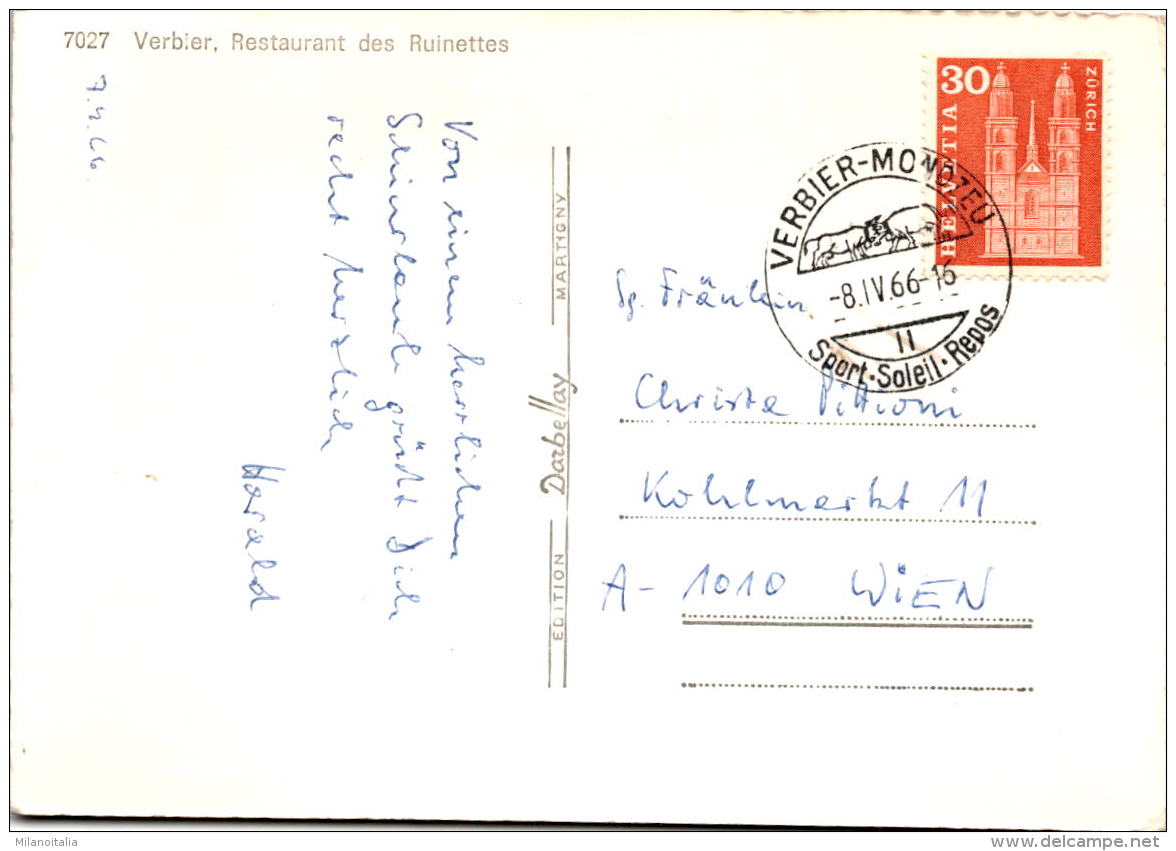 7027 Verbier, Restaurant des Ruinettes
7.4.66.
Von einem herrlichen
Schiurlaub grüßt Dich
recht herzlich
Harald
EDITION Darbellay MARTIGNY
30
HELVETIA
ZÜRICH
VERBIER-MONDZEU
-8.IV.66-16
II
Sport·Soleil·Repos
Sg. Fräulein
Christa Pittioni
Kohlmarkt 11
A-1010 WIEN
Milanoitalia
www.delcampe.net